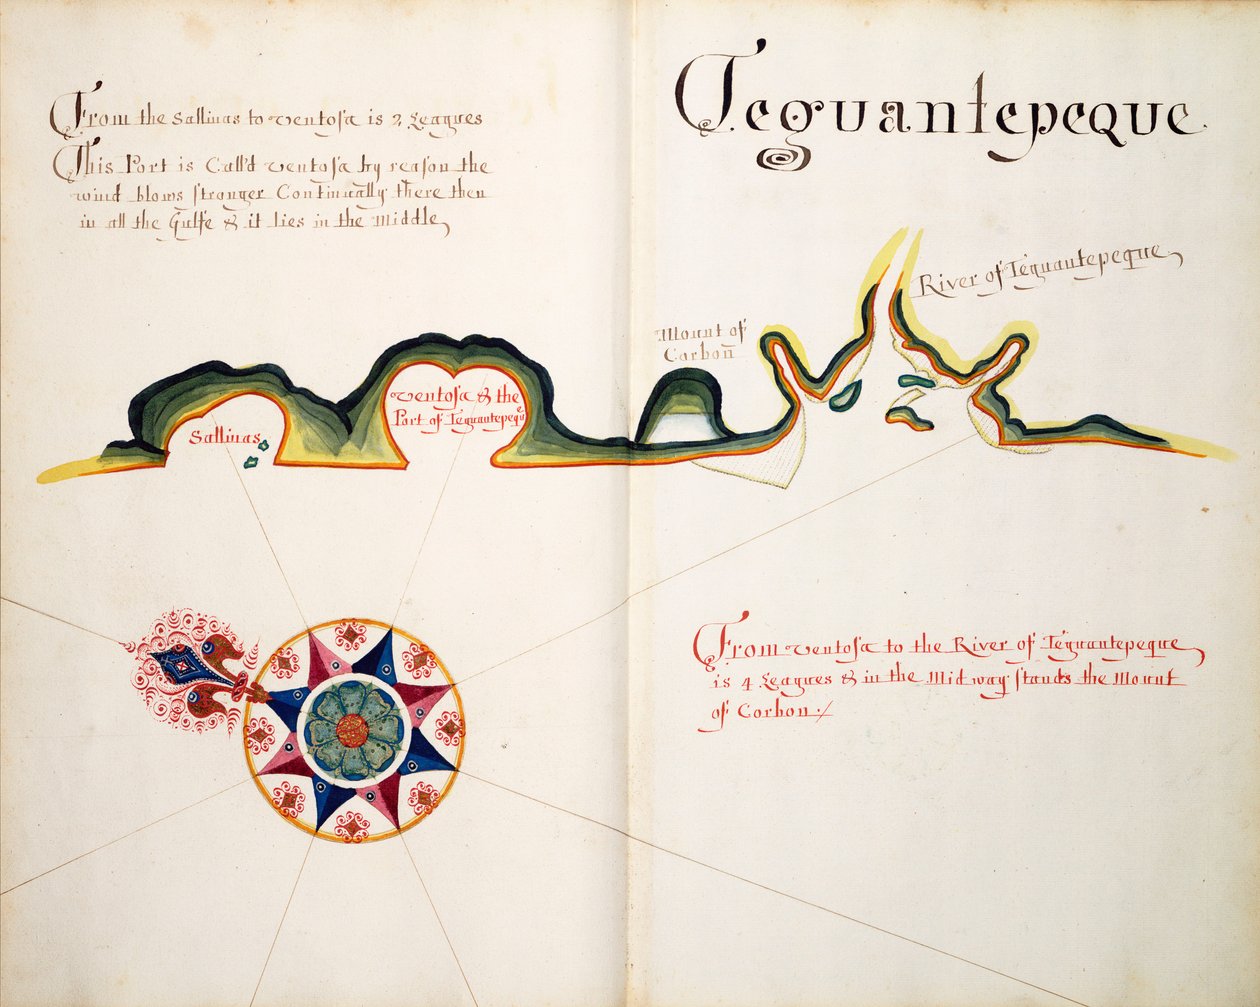 From the Sallinas to Ventosa is 2 Leagues
This Port is Call'd Ventosa by reason the
wind blows stronger Continually there then
in all the Gulfe & it lies in the Middle,
Teguantepeque.
River of Teguantepeque,
Mount of
Corbon
Sallinas
Ventosa & the
Port of Teguantepeque
From Ventosa to the River of Teguantepeque,
is 4 Leagues & in the Midway stands the Mount
of Corbon ./